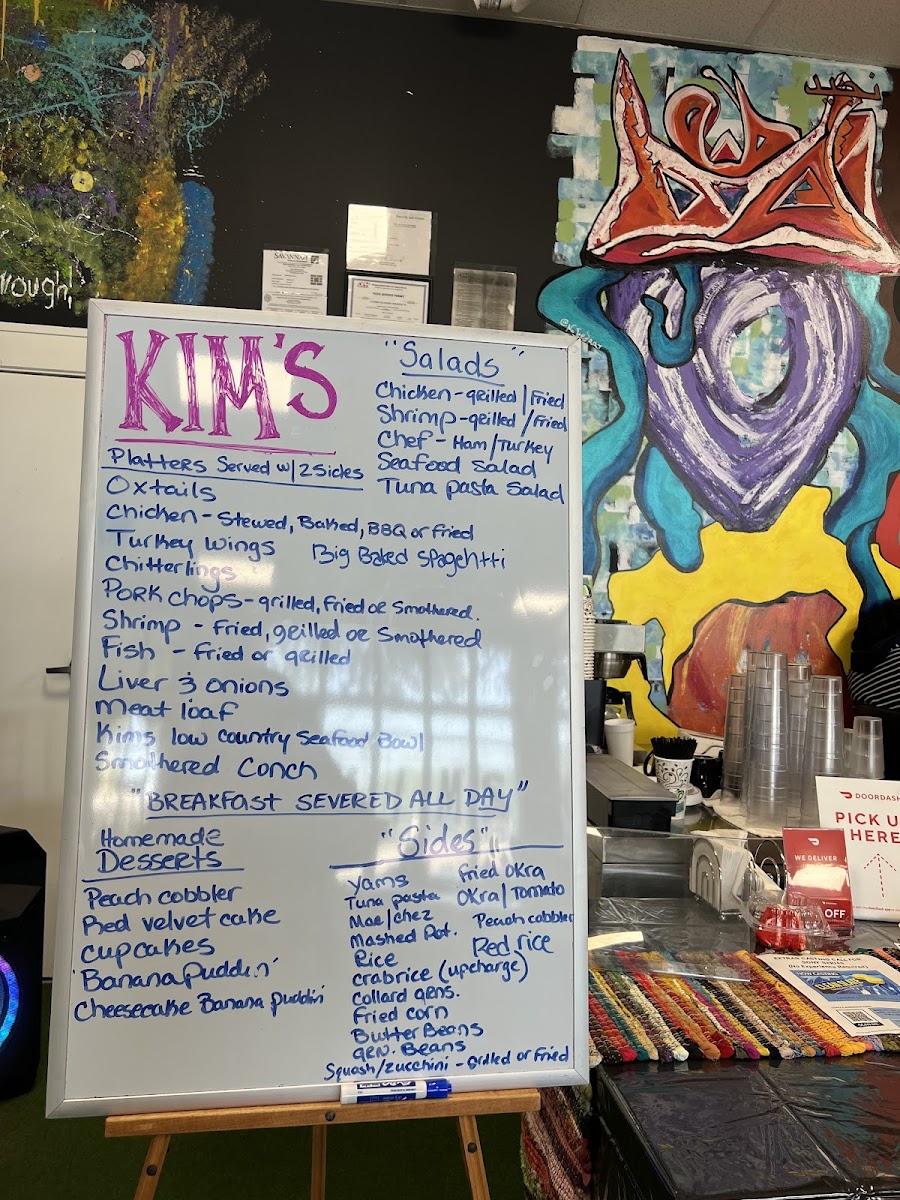 rough!
SAVANNAH
@K
KIM'S
Platters Served w/2 Sides
Oxtails
Chicken - Stewed, Baked, BBQ or Fried
Turkey wings
Big Baked Spagehtti
Chitterlings
Pork Chops - grilled, Fried or Smothered.
Shrimp - Fried, grilled or Smothered
Fish - Fried or grilled
Liver & onions
Meat loaf
Kim's low country Seafood Bowl
Smothered Conch
"Salads"
Chicken - grilled / Fried
Shrimp - grilled / Fried
Chef - Ham / Turkey
Seafood Salad
Tuna pasta Salad
"BREAKFAST SEVERED ALL DAY"
Homemade
Desserts
Peach cobbler
Red velvet cake
Cupcakes
'Banana Puddin'
Cheesecake Banana puddin'
"Sides"
Yams
Tuna pasta
Mac/chez
Mashed Pot.
Rice
Crabrice (upcharge)
Collard grns.
Fried corn
Butter Beans
grn. Beans
Squash/zucchini - Grilled or Fried
Fried OKra
OKra/Tomato
Peach cobbler
Red rice
DOORDASH
PICK UP
HERE
WE DELIVER
OFF
EXTRAS CASTING CALL FOR
SONY SERIES
(No Experience Required!)
NOW CASTING